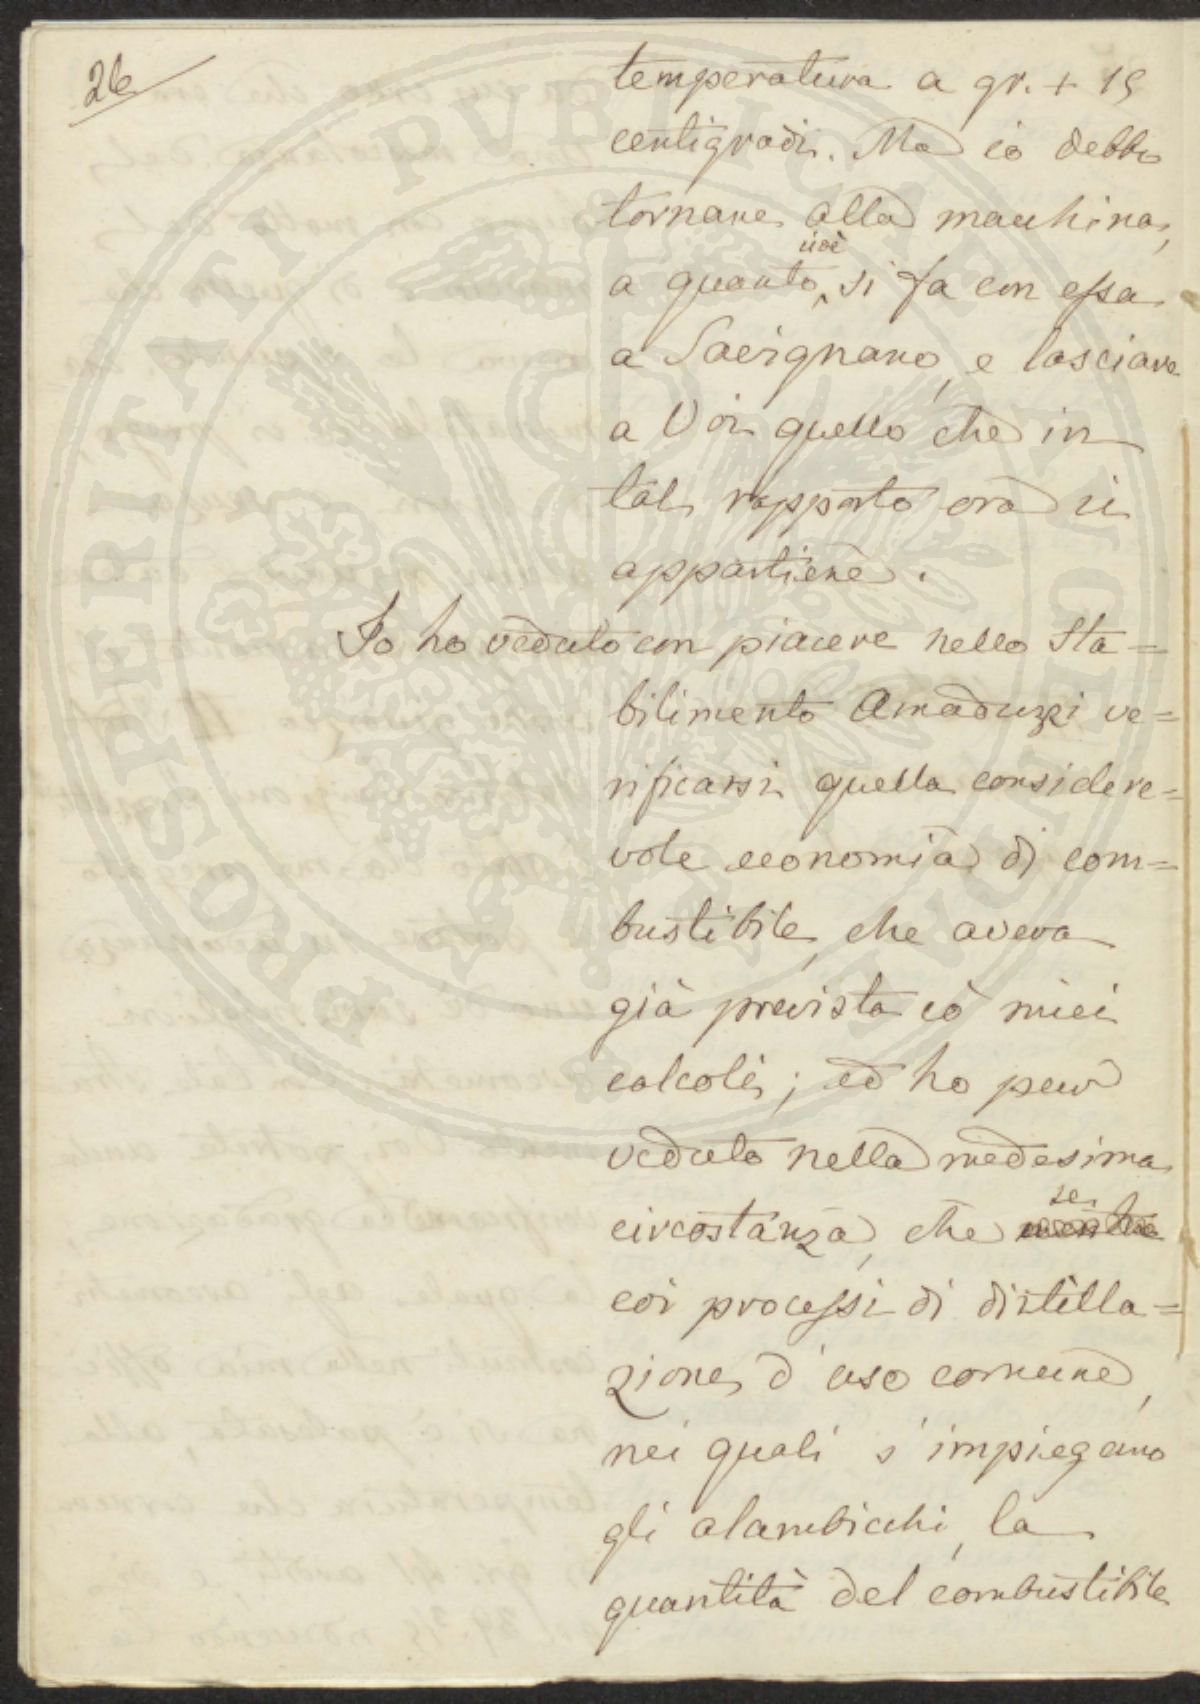 26
temperatura a gr. + 15
centigradi. Ma io debbo
tornare alla macchina,
cioè
a quanto si fa con essa
a Savignano, e lasciare
a Voi quello che in
tal rapporto ora vi
appartiene.
Io ho veduto con piacere nello Sta=
bilimento Amaduzzi ve=
rificarsi quella considere=
vole economia di com=
bustibile, che aveva
già prevista co' miei
calcoli; ed ho pur
veduto nella medesima
se
circostanza, che
coi processi di distilla=
zione d'uso comune,
nei quali s'impiegano
gli alambicchi, la
quantità del combustibile
PROSPERITATI PVBLICAE AVGENDAE